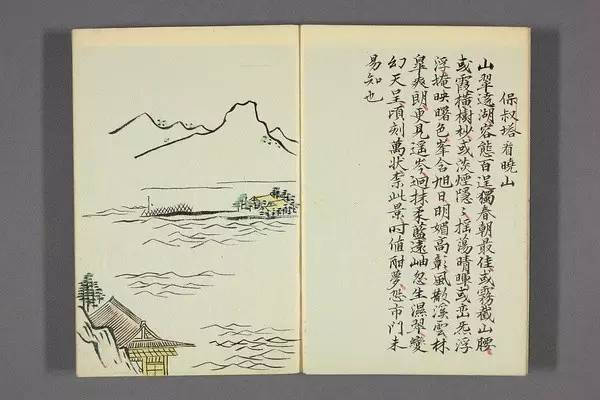 保叔塔看曉山
山翠遶湖容態百逞獨春朝最佳或霧截山腰
或霞橫樹杪或淡煙隱〻搖蕩晴暉或巒氣浮
浮掩映曙色峯含旭日明媚高彰風散溪雲林
皐爽朗更見遥岑迥抹柔藍遠岫忽生濕翠變
幻天呈頃刻萬狀柰此景時值酣夢恐市門未
易知也